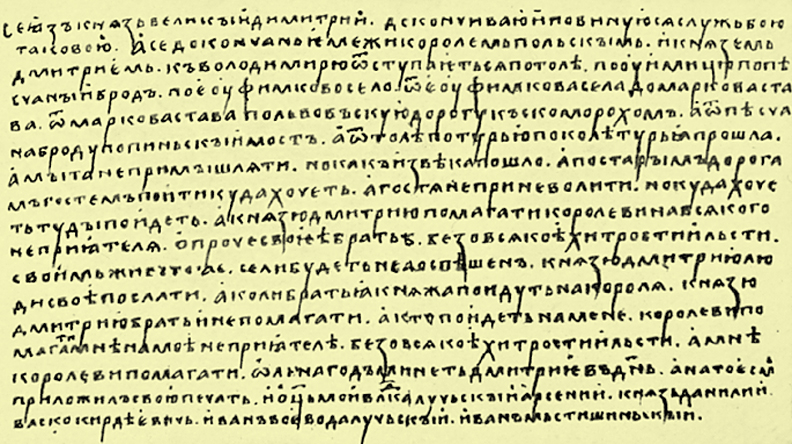 се ꙗзъ кнѧзь великъıи димитрии. доконуиваю и повинуюсѧ служьбою
таковою. а се доконуаньѥ межи королемь польскъıмь. и кнѧземь
дмитриѥмь. къ володимирю ѿступаѥтьсѧ потолѣ. по оуимицю по пѣ
суанъıи бродъ. по ѥоуфимково село. ѿ ѥоуфимкова села до маркова ста
ва. ѿ маркова става по львовьскую дорогу къ скоморохомъ. а ѿ пѣсуа
на броду по пиньскъıи мостъ. а ѿтолѣ по турью поколѣ турьꙗ прошла.
а мъıта не примъıшлѧти. но какъ и звѣка пошло. а по старъıмъ дорога
мъ гостемъ поити куда хоуеть. а гостѧ не приневолити. но куда хоуе
ть тудъı поидеть. а кнѧзю дмитрию помагати королеви на всѧкого
неприꙗтелѧ. опроуе своѥѣ братьѣ. безо всѧкоѣ хитрости и льсти.
своимь животомь. сели будеть недоспѣшенъ. кнѧзю дмитрию лю
ди своѣ послати. а коли братьꙗ кнѧжа поидуть на королѧ. кнѧзю
дмитрию братьи не помагати. а кто поидеть на мене. королеви по
магати мнѣ на моѣ неприꙗтелѣ. безо всѧкоѣ хитрости и льсти. а мнѣ
королеви помагати. ѿльна годъ минеть дмитриѥвъ днь. а на то ѥсмь
приложилъ свою пеуать. и ѿць мои влка лууьскъıи арсении. кнѧзь данилии.
васко кирдѣѥвиуь. иванъ воѥвода луцьскъıи. иванъ мьстишиньскъıи.